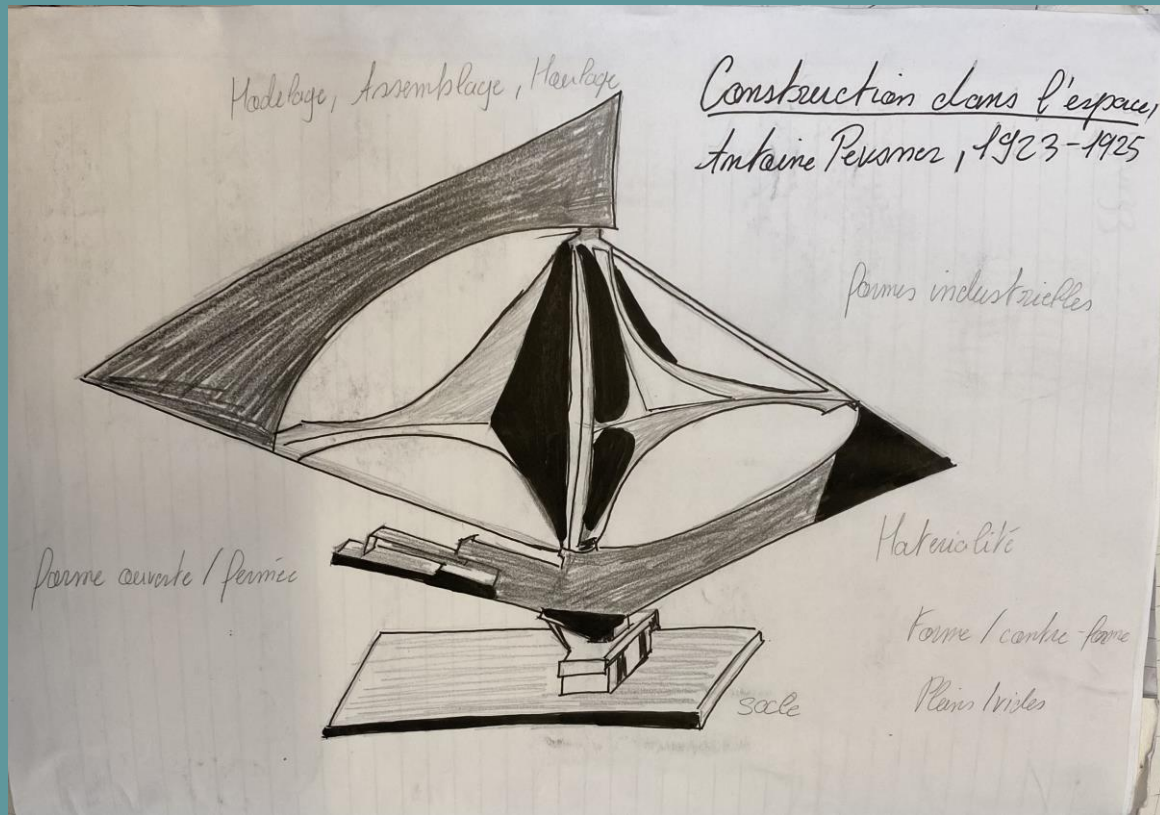 Modelage, Assemblage, Moulage
Construction dans l'espace,
Antoine Pevsner, 1923-1925
formes industrielles
forme ouverte / fermée
Materialité
Forme / contre-forme
Pleins / vides
socle